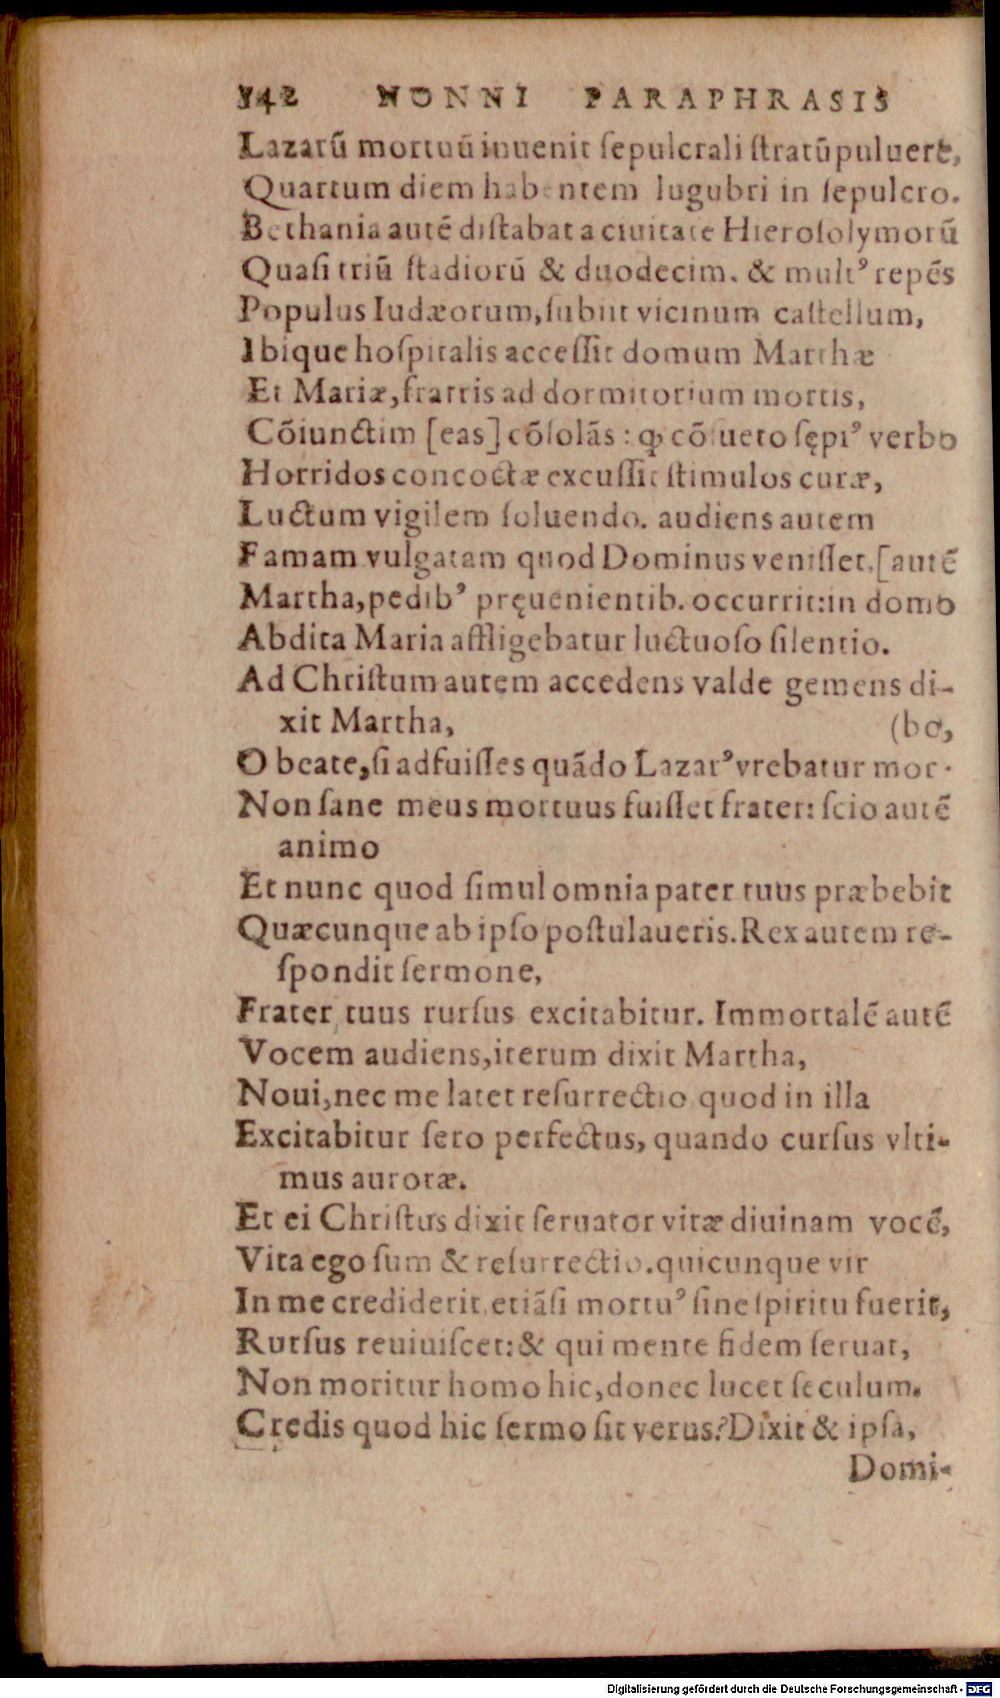 142 NONNI PARAPHRASIS
Lazarū mortuū inuenit ſepulcrali ſtratū puluere,
Quartum diem habentem lugubri in ſepulcro.
Bethania autē diſtabat a ciuitate Hieroſolymorū
Quaſi triū ſtadiorū & duodecim. & multꝰ repēs
Populus Iudæorum, ſubiit vicinum caſtellum,
Ibique hoſpitalis acceſſit domum Marthæ
Et Mariæ, fratris ad dormitorium mortis,
Cōiunctim [eas] cōſolās: ꝙ cōſueto ſępiꝰ verbo
Horridos concoctæ excuſſit ſtimulos curæ,
Luctum vigilem ſoluendo. audiens autem
Famam vulgatam quod Dominus veniſſet, [autē
Martha, pedibꝰ pręuenientib. occurrit: in domo
Abdita Maria affligebatur luctuoſo ſilentio.
Ad Chriſtum autem accedens valde gemens di-
xit Martha, (bo,
O beate, ſi adfuiſſes quādo Lazarꝰ vrebatur mor-
Non ſane meus mortuus fuiſſet frater: ſcio autē
animo
Et nunc quod ſimul omnia pater tuus præbebit
Quæcunque ab ipſo poſtulaueris. Rex autem re-
ſpondit ſermone,
Frater tuus rurſus excitabitur. Immortalē autē
Vocem audiens, iterum dixit Martha,
Noui, nec me latet reſurrectio quod in illa
Excitabitur ſero perfectus, quando curſus vlti-
mus auroræ.
Et ei Chriſtus dixit ſeruator vitæ diuinam vocē,
Vita ego ſum & reſurrectio. quicunque vir
In me crediderit, etiāſi mortuꝰ ſine ſpiritu fuerit,
Rurſus reuiuiſcet: & qui mente fidem ſeruat,
Non moritur homo hic, donec lucet ſeculum.
Credis quod hic ſermo ſit verus? Dixit & ipſa,
Domi-
Digitalisierung gefördert durch die Deutsche Forschungsgemeinschaft - DFG